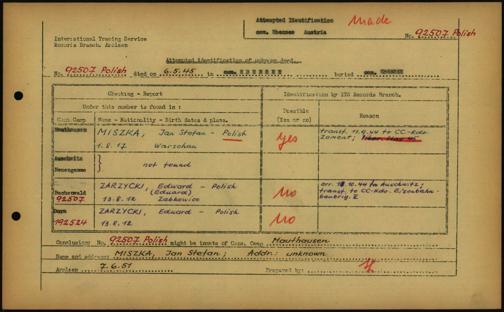 Attempted Identification Made
cem. Ebensee Austria
No. 92507 Polish
International Tracing Service
Records Branch, Arolsen
Attempted identification of unknown dead.
No. 92507 Polish died on 6.5.45 in cem. EBENSEE buried cem.
Checking - Report
Identification by ITS Records Branch.
Under this number is found in :
Possible (Yes or no)
Reason
Conc. Camp
Name - Nationality - Birth dates & place.
Mauthausen
MISZKA, Jan Stefan - Polish
1.8.17 Warschau
Yes
transf. 11.9.44 to CC-Kdo.
Auschwitz
Neuengamme
not found
Buchenwald
92507
ZARZYCKI, Edward - Polish
(Eduard)
13.8.12 Zabkowice
no
to Auschwitz;
transf. to CC-Kdo. Eisenbahn-
baubrig.
192524
ZARZYCKI, Edward - Polish
13.8.12
no
Conclusion: No. 92507 Polish might be inmate of Conc. Camp Mauthausen
Name and address: MISZKA, Jan Stefan; Addr: unknown
Arolsen 7.6.51 Prepared by: